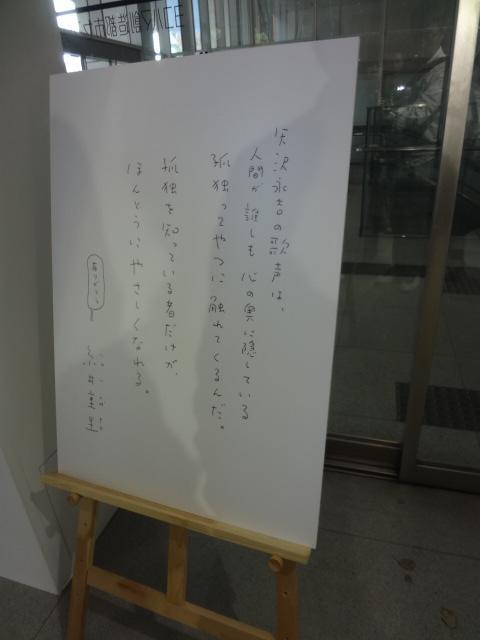 矢沢永吉の歌声は、
人間が誰しも心の奥に隠している
孤独ってやつに触れてくるんだ。
孤独を知っている者だけが、
ほんとうにやさしくなれる。
ありがとう
糸井重里
ヨコハマ創造都市セ